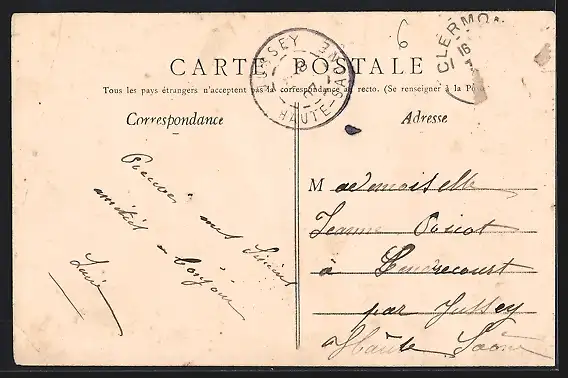 CARTE POSTALE
Tous les pays étrangers n'acceptent pas la correspondance au recto. (Se renseigner à la Poste
JUSSEY
HAUTE-SAONE
CLERMON
16
6
Correspondance
Adresse
mes Sincères
amitiés
Mademoiselle
Jeanne
à
par Jussey
Haute Saône